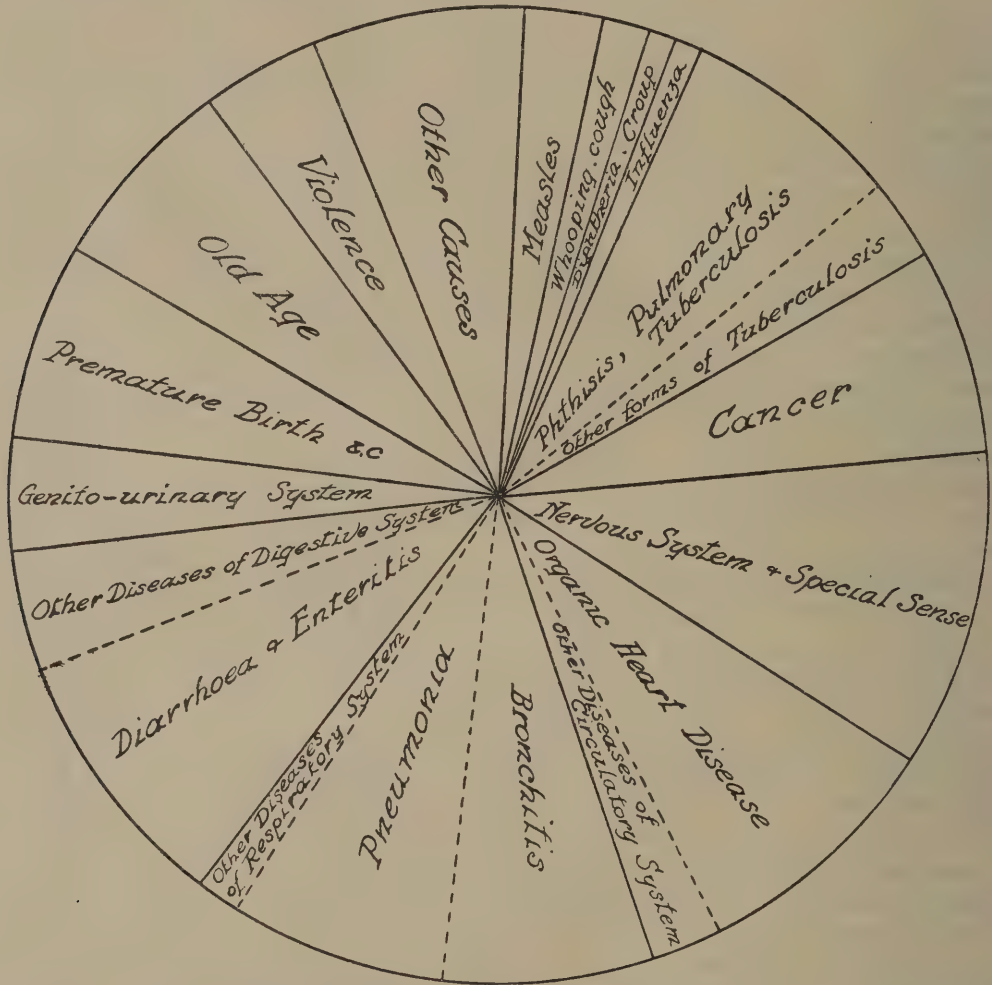 Measles
Whooping.cough
Diphtheria.Croup
Influenza
Phthisis, Pulmonary
Tuberculosis
Other forms of Tuberculosis
Cancer
Nervous System & Special Sense
Organic Heart Disease
Other Diseases of
Circulatory System
Bronchitis
Pneumonia
Other Diseases
of Respiratory System
Diarrhoea & Enteritis
Other Diseases of Digestive System
Genito-urinary System
Premature Birth &c
Old Age
Violence
Other Causes